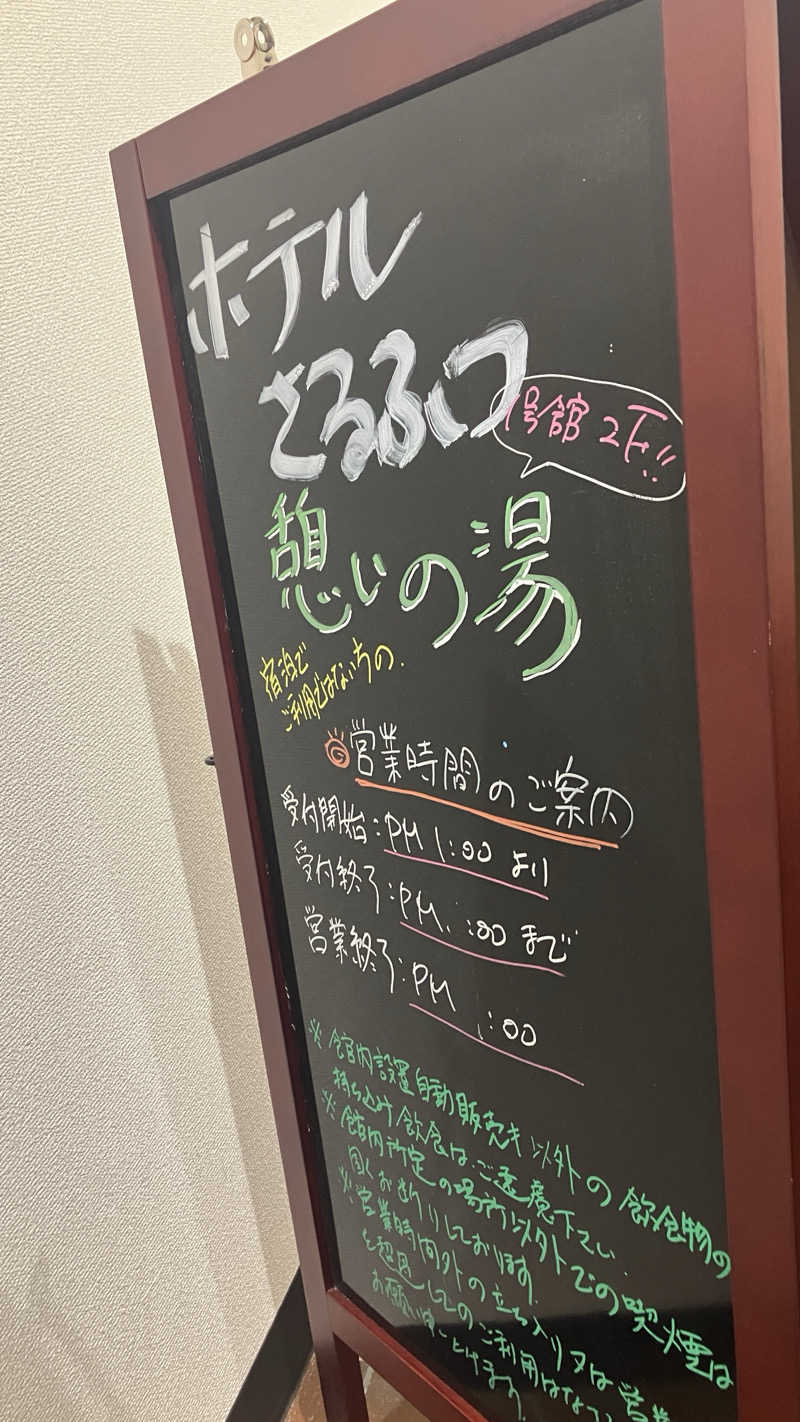 ホテル
さるふつ
号館 2F!!
憩いの湯
宿泊で
ご利用ではない方の
営業時間のご案内
受付開始:PM 1:00 より
受付終了:PM :00 まで
営業終了:PM :00
※館内設置自動販売き以外の飲食物の
持ち込み飲食はご遠慮下さい
※館内所定の場所以外での喫煙は
固くお断りしております
※営業時間外の立ち入り又は営業
を超過してのご利用はなさ
お願い申し上げます